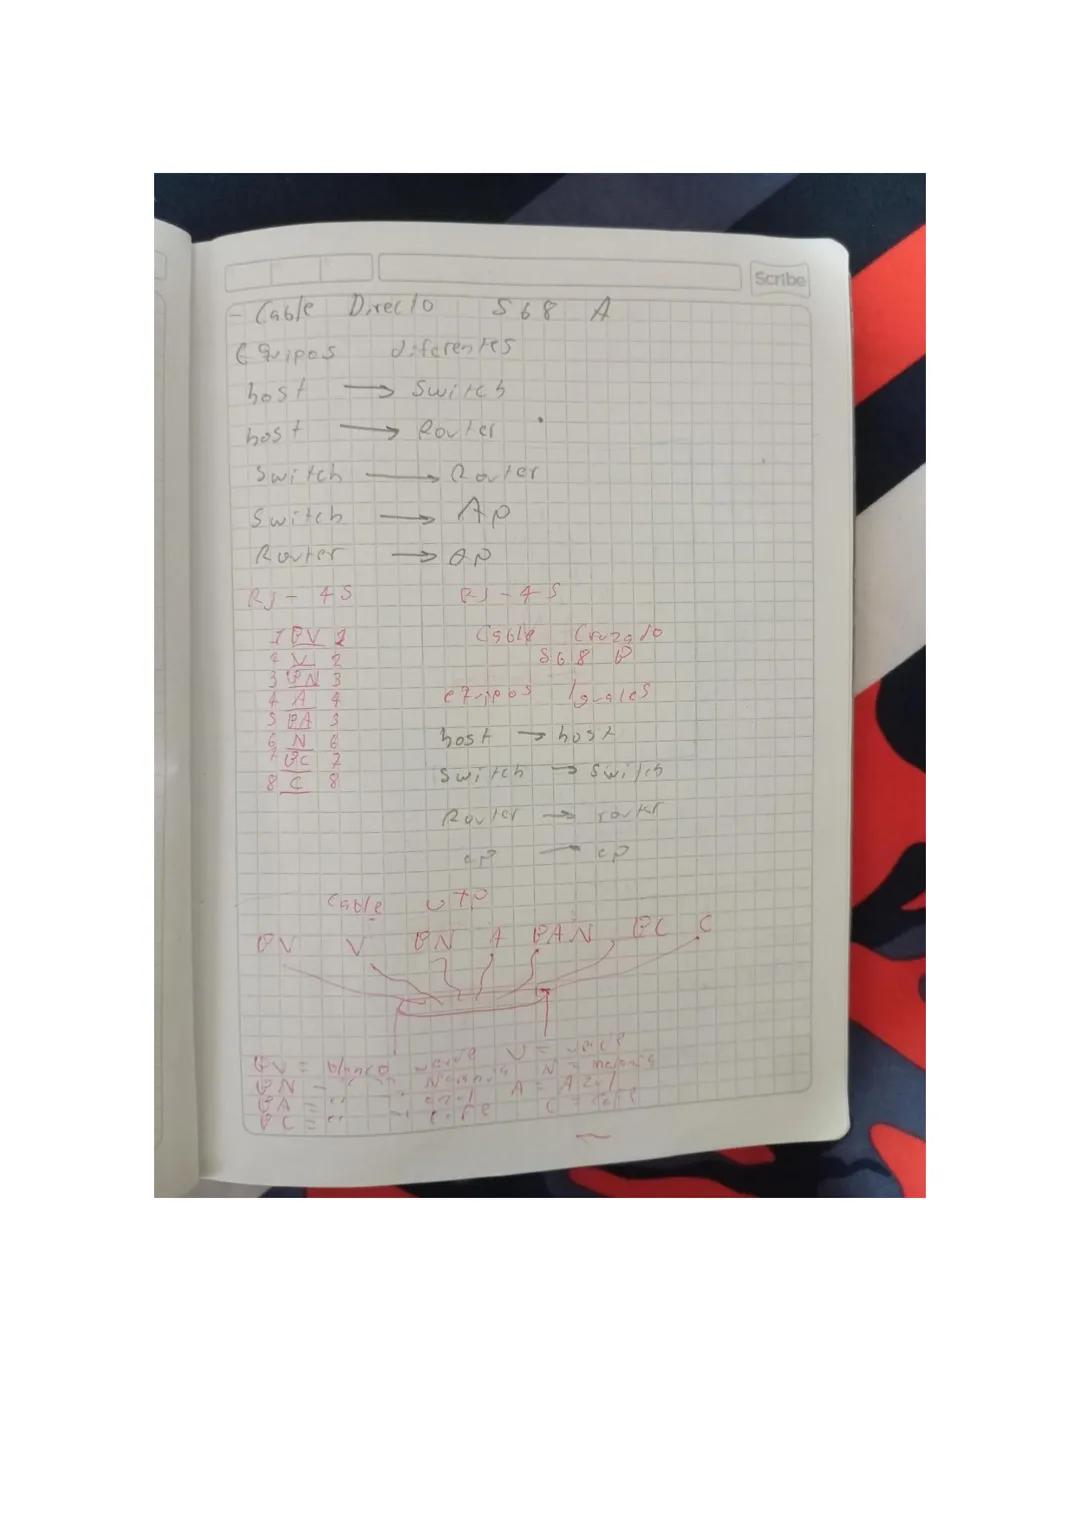 Scribe
- Cable Directo 568 A
Equipos diferentes
host → Switch
host → Router
Switch → Router
Switch → Ap
Router → ap
RJ - 45
1 BV 1
2 V 2
3 BN 3
4 A 4
5 BA 5
6 N 6
7 BC 7
8 C 8
RJ - 45
Cable Cruzado
568 B
equipos Iguales
host → host
Switch → Switch
Router → router
ap → ap
Cable UTP
BV V BN A BAN BC C
BV = blanco verde V = verde
BN - " " Naranja N = naranja
BA = " - azul A = Azul
BC = " - Cafe C = Cafe